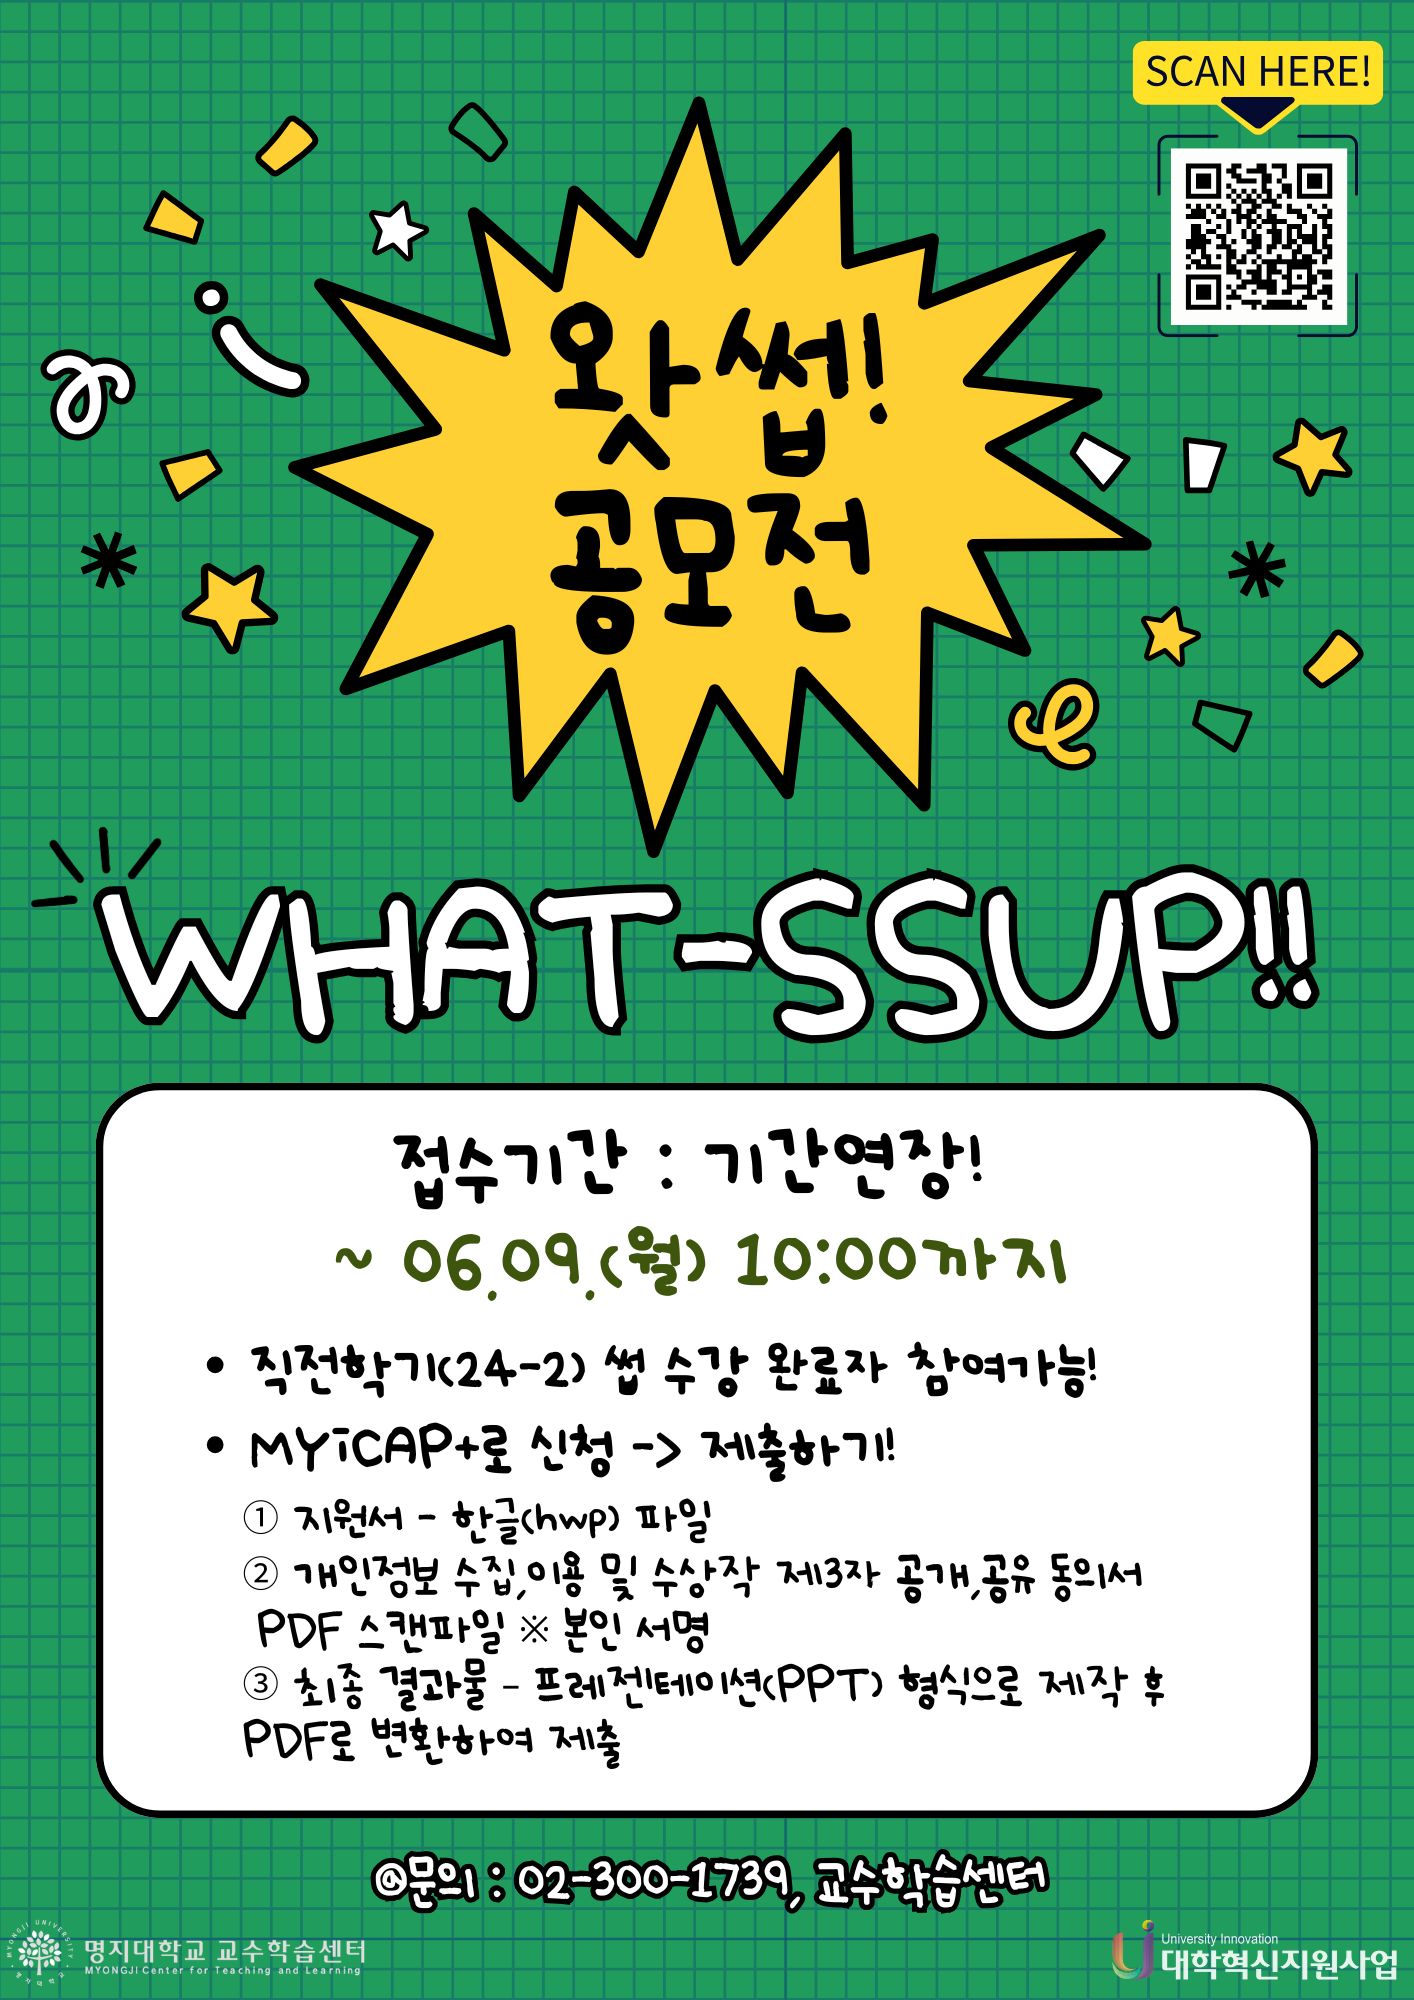 SCAN HERE!
왓썹!
공모전
WHAT-SSUP!!
접수기간 : 기간연장!
~ 06.09.(월) 10:00까지
• 직전학기(24-2) 썹 수강 완료자 참여가능!
• MYiCAP+로 신청 -> 제출하기!
① 지원서 - 한글(hwp) 파일
② 개인정보 수집,이용 및 수상작 제3자 공개,공유 동의서
PDF 스캔파일 ※ 본인 서명
③ 최종 결과물 - 프레젠테이션(PPT) 형식으로 제작 후
PDF로 변환하여 제출
@문의 : 02-300-1739, 교수학습센터
MYONGJI UNIVERSITY
명지대학교
명지대학교 교수학습센터
MYONGJI Center for Teaching and Learning
University Innovation
대학혁신지원사업